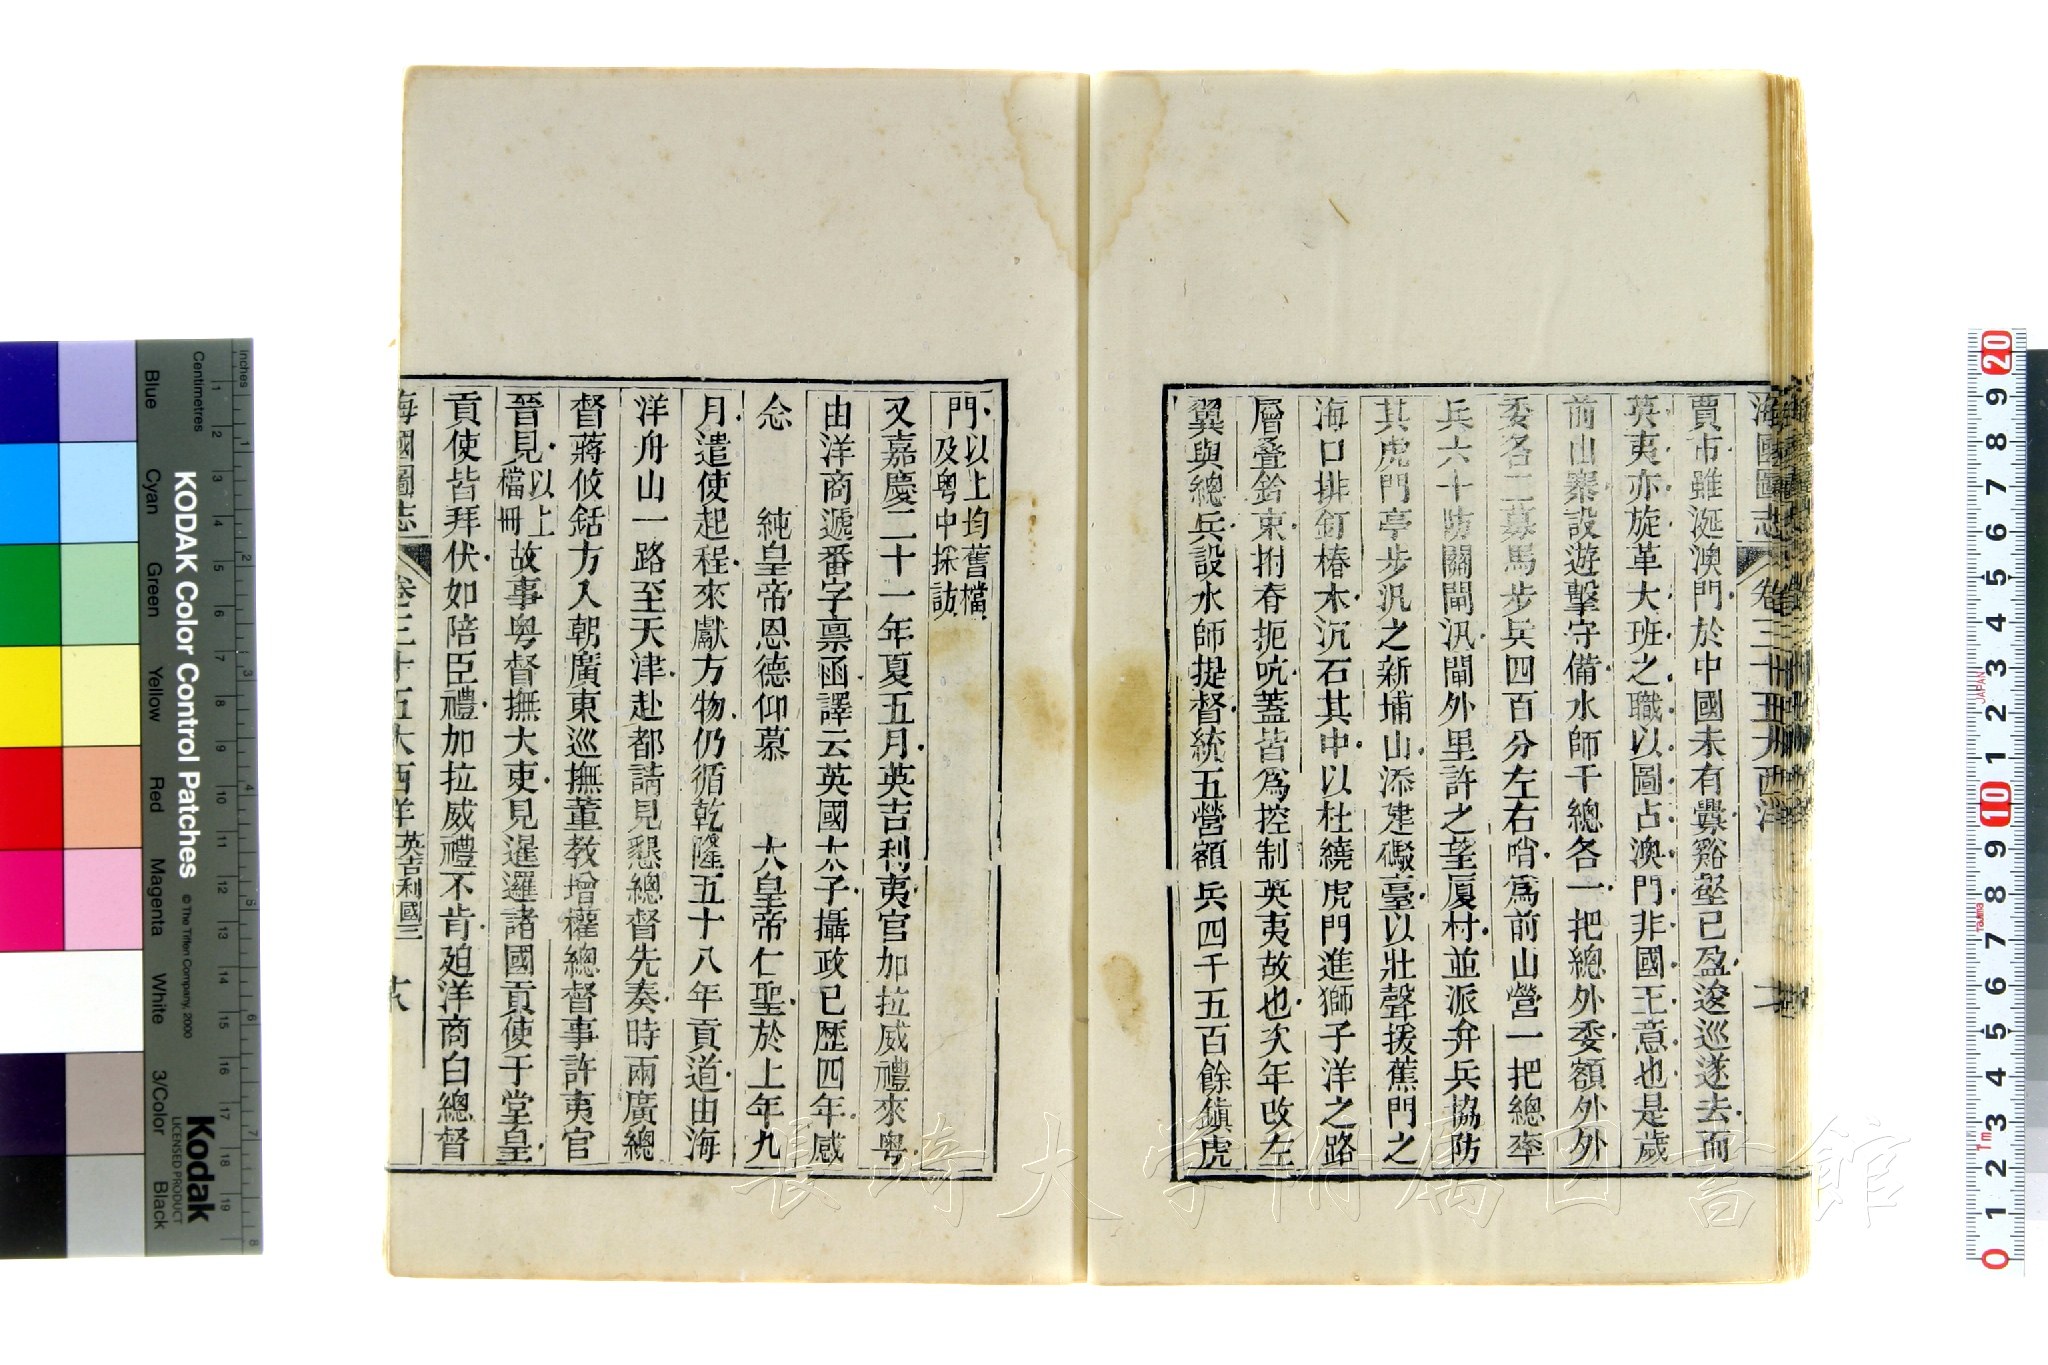 海國圖志 卷三十五大西洋
賈市雖涎澳門於中國未有釁谿壑已盈逡巡遂去而
英夷亦旋革大班之職以圖占澳門非國王意也是歲
前山寨設遊擊守備水師千總各一把總外委額外外
委各二募馬步兵四百分左右哨爲前山營一把總率
兵六十防關閘汛閘外里許之望厦村並派弁兵協防
其虎門亭步汛之新埔山添建礮臺以壯聲援蕉門之
海口排釘樁木沉石其中以杜繞虎門進獅子洋之路
層叠鈐束拊脊扼吭蓋皆爲控制英夷故也次年改左
翼與總兵設水師提督統五營額兵四千五百餘鎮虎
門以上均舊檔
及粤中採訪
又嘉慶二十一年夏五月英吉利夷官加拉威禮來粤
由洋商遞番字禀函譯云英國太子攝政已歷四年感
念 純皇帝恩德仰慕 大皇帝仁聖於上年九
月遣使起程來獻方物仍循乾隆五十八年貢道由海
洋舟山一路至天津赴都請見懇總督先奏時兩廣總
督蔣攸銛方入朝廣東巡撫董教增權總督事許夷官
晉見以上
檔冊故事粤督撫大吏見暹邏諸國貢使于堂皇
貢使皆拜伏如陪臣禮加拉威禮不肯廹洋商白總督
海國圖志 卷三十五大西洋 英吉利國三
長崎大学附属図書館
KODAK Color Control Patches
© The Tiffen Company, 2000
Kodak
LICENSED PRODUCT
Blue Cyan Green Yellow Red Magenta White 3/Color Black
Inches
Centimetres
1 2 3 4 5 6 7 8
1 2 3 4 5 6 7 8 9 10 11 12 13 14 15 16 17 18 19
20 9 8 7 6 5 4 3 2 1 10 9 8 7 6 5 4 3 2 1 0
JAPAN